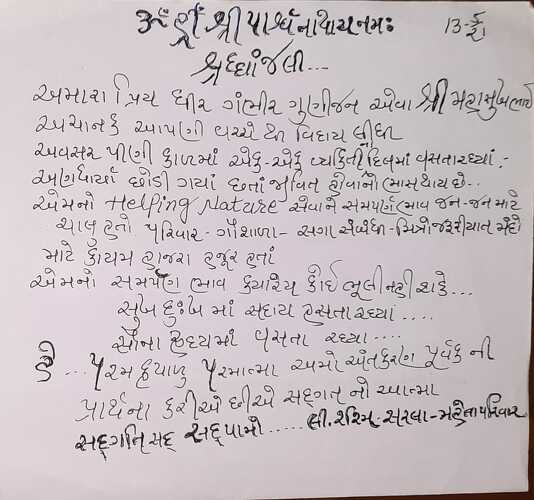 ૐ હ્રીઁ શ્રી પાર્શ્વનાથાય નમઃ
શ્રદ્ધાંજલી...
અમારા પ્રિય ધીર ગંભીર ગુણીજન એવા શ્રી મહાસુખભાઈ
અચાનક આપણી વચ્ચે થી વિદાય લીધી
અવસર પીણી કાળમાં એક-એક વ્યકિતની દિલમાં વસતા રહ્યાં.-
અણધાર્યા છોડી ગયાં છતાં જીવિત હોવાનો ભાસ થાય છે..
એમનો Helping Nature સેવાને સમપર્ણ ભાવ જન-જન માટે
ચાલુ હતો પરિવાર-ગૌશાળા- સગા સંબંધી-મિત્રો જરૂરીયાત મંદો
માટે કાયમ હાજરા હજૂર હતાં
એમનો સમપર્ણ ભાવ કયારેય કોઈ ભૂલી નહી શકે....
સુખ દુઃખ માં સદાય હસતા રહ્યાં....
સૌના હૃદયમાં વસતા રહ્યા....
હે... પરમ કૃપાળુ પરમાત્મા અમો અંતકરણ પૂર્વક ની
પ્રાર્થના કરીએ છીએ સદ્ગત નો આત્મા
સદ્ગતિ સદ્ સદ્ પામો..... લી. રશ્મિ-સરલા-મહેતા પરિવાર